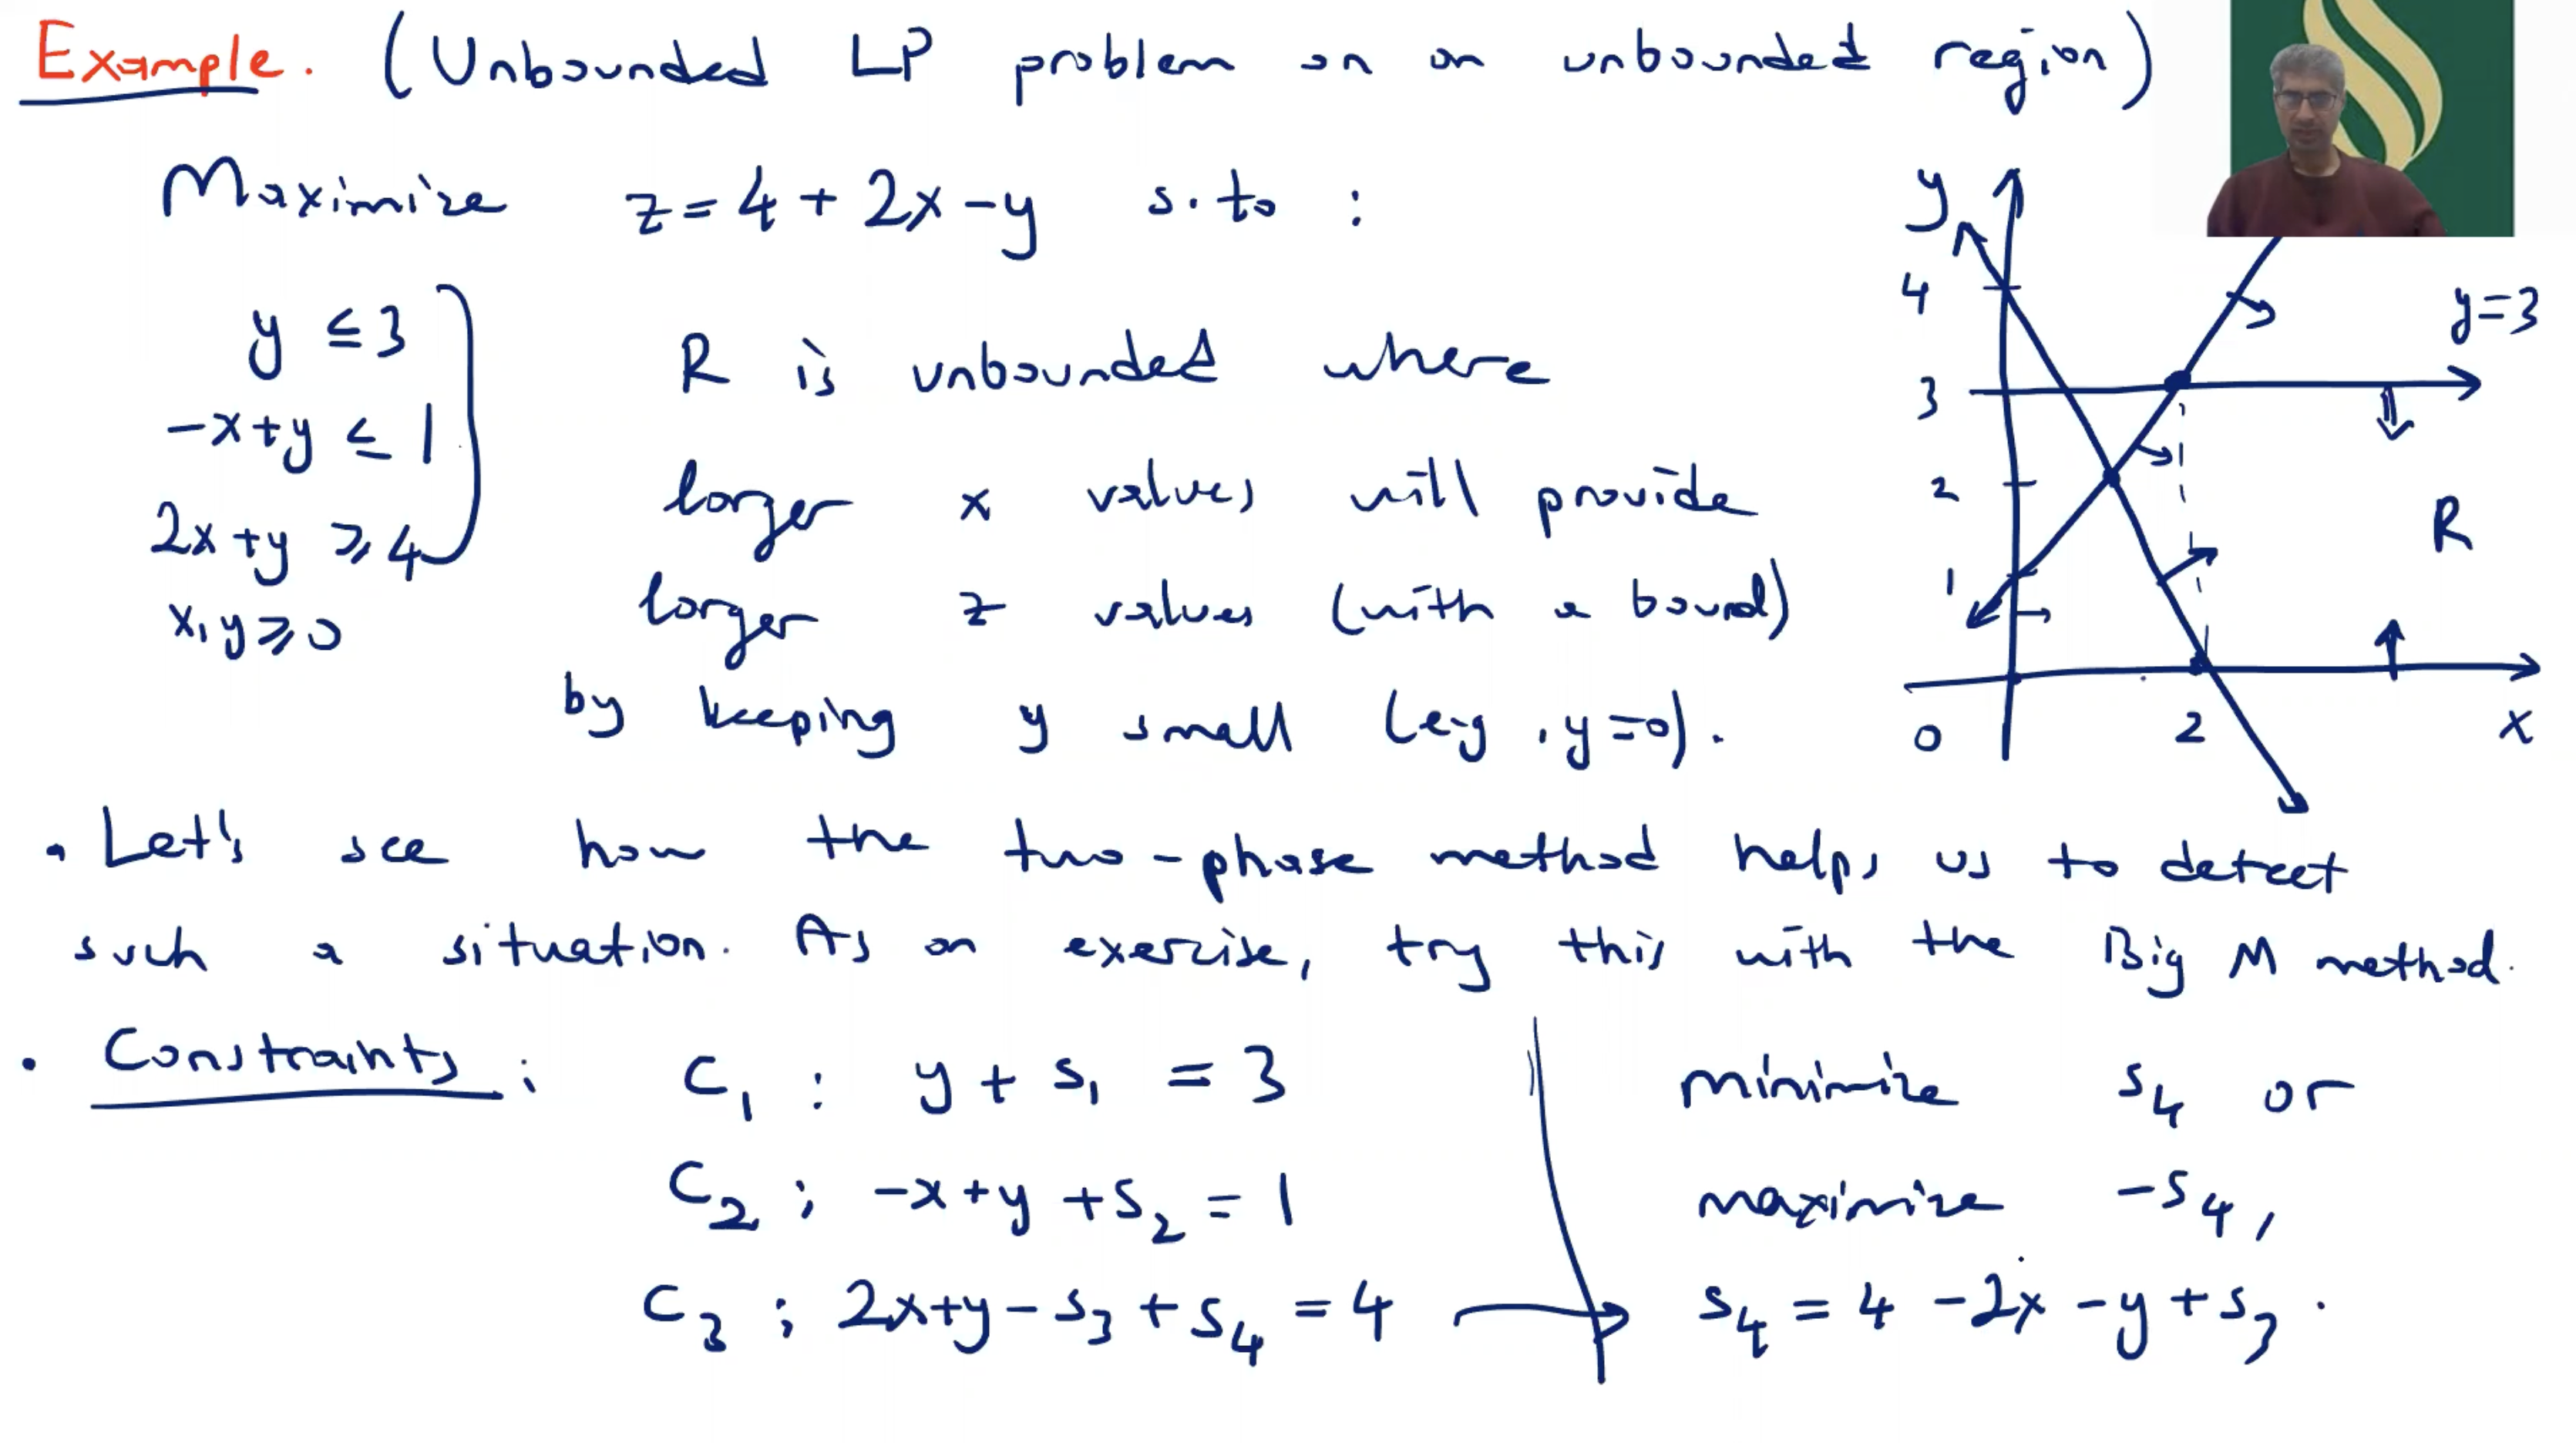 Example. (Unbounded LP problem on an unbounded region)
Maximize z = 4 + 2x - y s. to :
y ≤ 3
-x+y ≤ 1
2x+y ≥ 4
x, y ≥ 0
R is unbounded where
larger x values will provide
larger z values (with a bound)
by keeping y small (e.g, y=0).
y
4
3
2
1
0
2
x
y=3
R
• Let's see how the two-phase method helps us to detect
such a situation. As an exercise, try this with the Big M method.
• Constraints :
C₁ : y + s₁ = 3
C₂ : -x+y + s₂ = 1
C₃ : 2x+y - s₃ + s₄ = 4
minimize s₄ or
maximize -s₄,
s₄ = 4 - 2x - y + s₃.